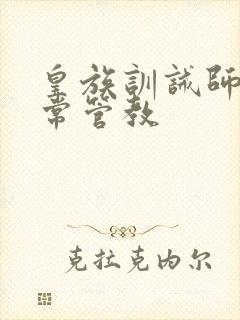 皇族訓誡師
常管教
克拉克内尔